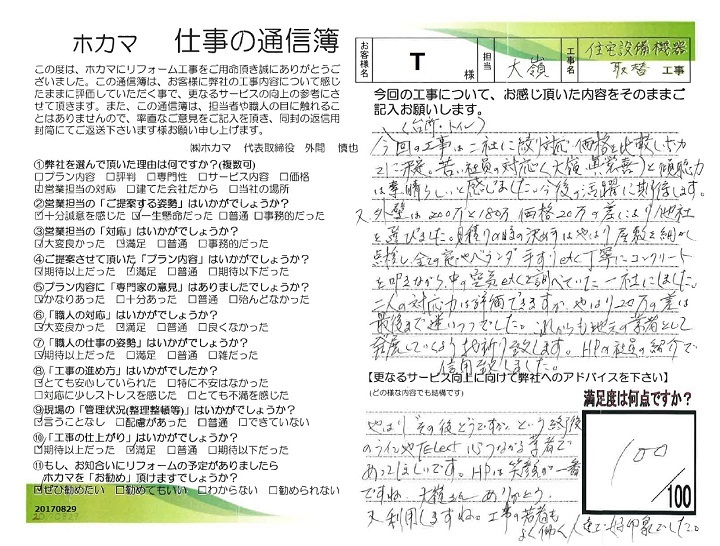 ホカマ 仕事の通信簿
この度は、ホカマにリフォーム工事をご用命頂き誠にありがとうご
ざいました。この通信簿は、お客様に弊社の工事内容について感じ
たままに評価していただく事で、更なるサービスの向上の参考にさ
せて頂きます。また、この通信簿は、担当者や職人の目に触れるこ
とはありませんので、率直なご意見をご記入頂き、同封の返信用
封筒にてご返送下さいます様お願い申し上げます。
㈱ホカマ 代表取締役 外間 慎也
①弊社を選んで頂いた理由は何ですか?(複数可)
□プラン内容 □評判 □専門性 □サービス内容 □価格
☑営業担当の対応 □建てた会社だから □当社の場所
②営業担当の「ご提案する姿勢」はいかがでしょうか?
☑十分誠意を感じた ☑一生懸命だった □普通 □事務的だった
③営業担当の「対応」はいかがでしょうか?
☑大変良かった ☑満足 □普通 □事務的だった
④ご提案させて頂いた「プラン内容」はいかがでしょうか?
☑期待以上だった ☑満足 □普通 □期待以下だった
⑤プラン内容に「専門家の意見」はありましたでしょうか?
☑かなりあった □十分あった □普通 □殆んどなかった
⑥「職人の対応」はいかがでしょうか?
☑大変良かった ☑満足 □普通 □良くなかった
⑦「職人の仕事の姿勢」はいかがでしょうか?
☑期待以上だった □満足 □普通 □雑だった
⑧「工事の進め方」はいかがでしたか?
☑とても安心していられた □特に不安はなかった
□対応に少しストレスを感じた □とても不満を感じた
⑨現場の「管理状況(整理整頓等)」はいかがでしょうか?
☑言うことなし □配慮があった □普通 □できていない
⑩「工事の仕上がり」はいかがでしょうか?
☑期待以上だった □満足 □普通 □期待以下だった
⑪もし、お知合いにリフォームの予定がありましたら
ホカマを「お勧め」頂けますでしょうか?
☑ぜひ勧めたい ☑勧めてもいい □わからない □勧められない
20170829
お客様名 T 様 担当 大嶺 工事名 住宅設備機器
取替 工事
今回の工事について、お感じ頂いた内容をそのままご
記入お願いします。
(台所・トイレ)
今回の工事は二社に絞り対応、価格を比較しホカマ
は素晴らしいと感じました。今後の活躍に期待します。
又、外壁は200万と180万 価格20万の差により他社
を選びました。見積りの時の決め手はやはり屋根を細かく
を叩きながら、中の空気etcを調べていた一社にしました。
二人の対応力は評価できますが、やはり20万の差は
最後まで迷いつつでした。これからも地元の業者として
発展していくよう祈り致します。HPの社員の紹介で
信用致しました。
【更なるサービス向上に向けて弊社へのアドバイスを下さい】
(どの様な内容でも結構です)
やはり"その後どうですか"という終了後
のラインやTELetc 心つながる業者で
あってほしいです。HPは笑顔が一番
ですね。大嶺さん ありがとう
又利用しますね。工事の若者も
よく働く人達で好印象でした。
満足度は何点ですか?
100
/100